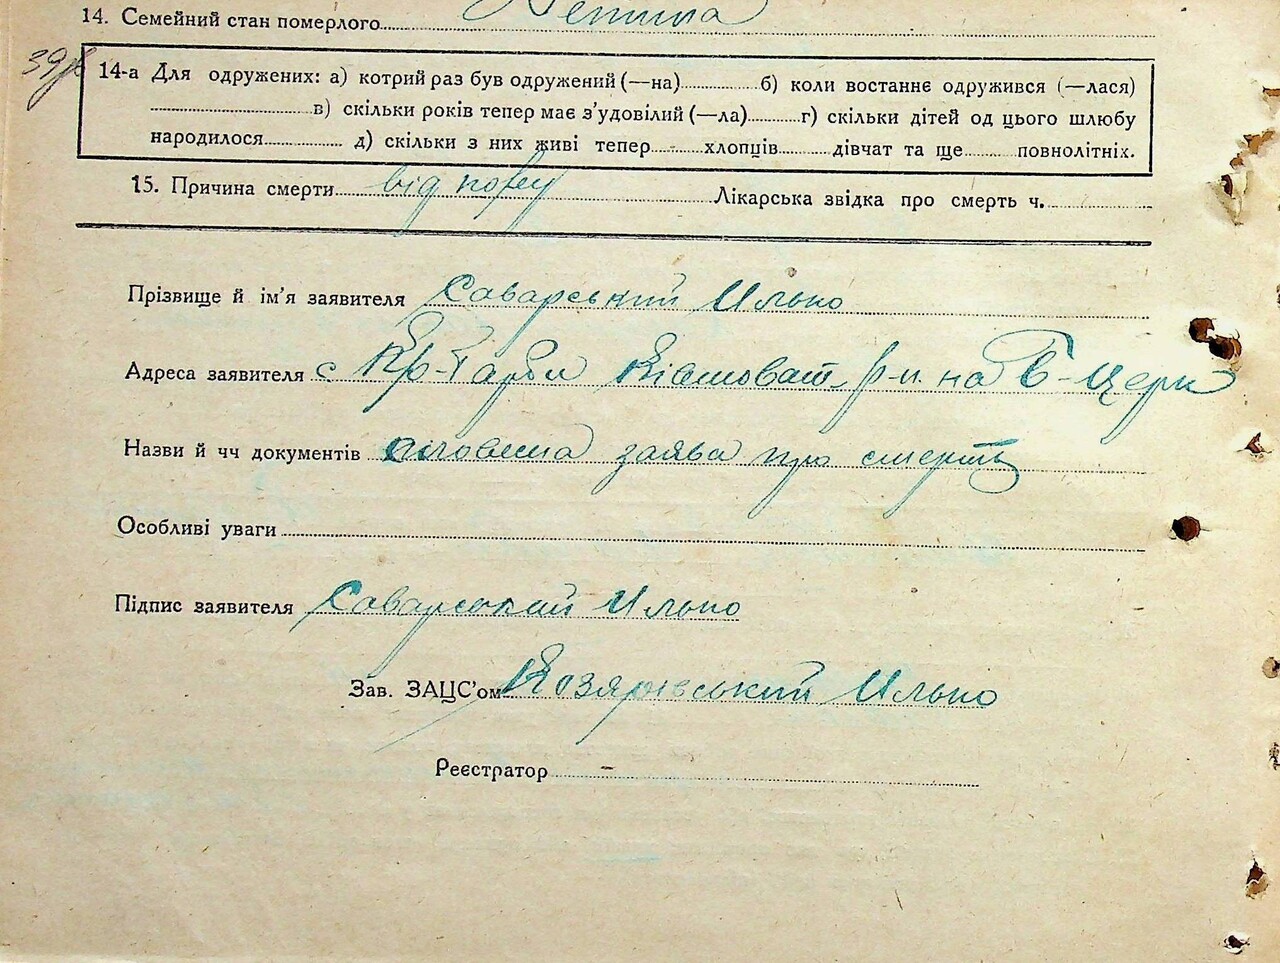 14. Семейний стан померлого
14-а Для одружених: а) котрий раз був одружений (—на)............б) коли востаннє одружився (—лася)
............в) скільки років тепер має з'удовілий (—ла)............г) скільки дітей од цього шлюбу
народилося............ д) скільки з них живі тепер.........хлопців.........дівчат та ще.........повнолітніх.
15. Причина смерти від Лікарська звідка про смерть ч.
Прізвище й ім'я заявителя Саварський Илько
Адреса заявителя с р-н. на Б-Церк
Назви й чч документів словесна заява про смерть
Особливі уваги
Підпис заявителя Саварський Илько
Зав. ЗАЦС'ом Козярівський Илько
Реєстратор –